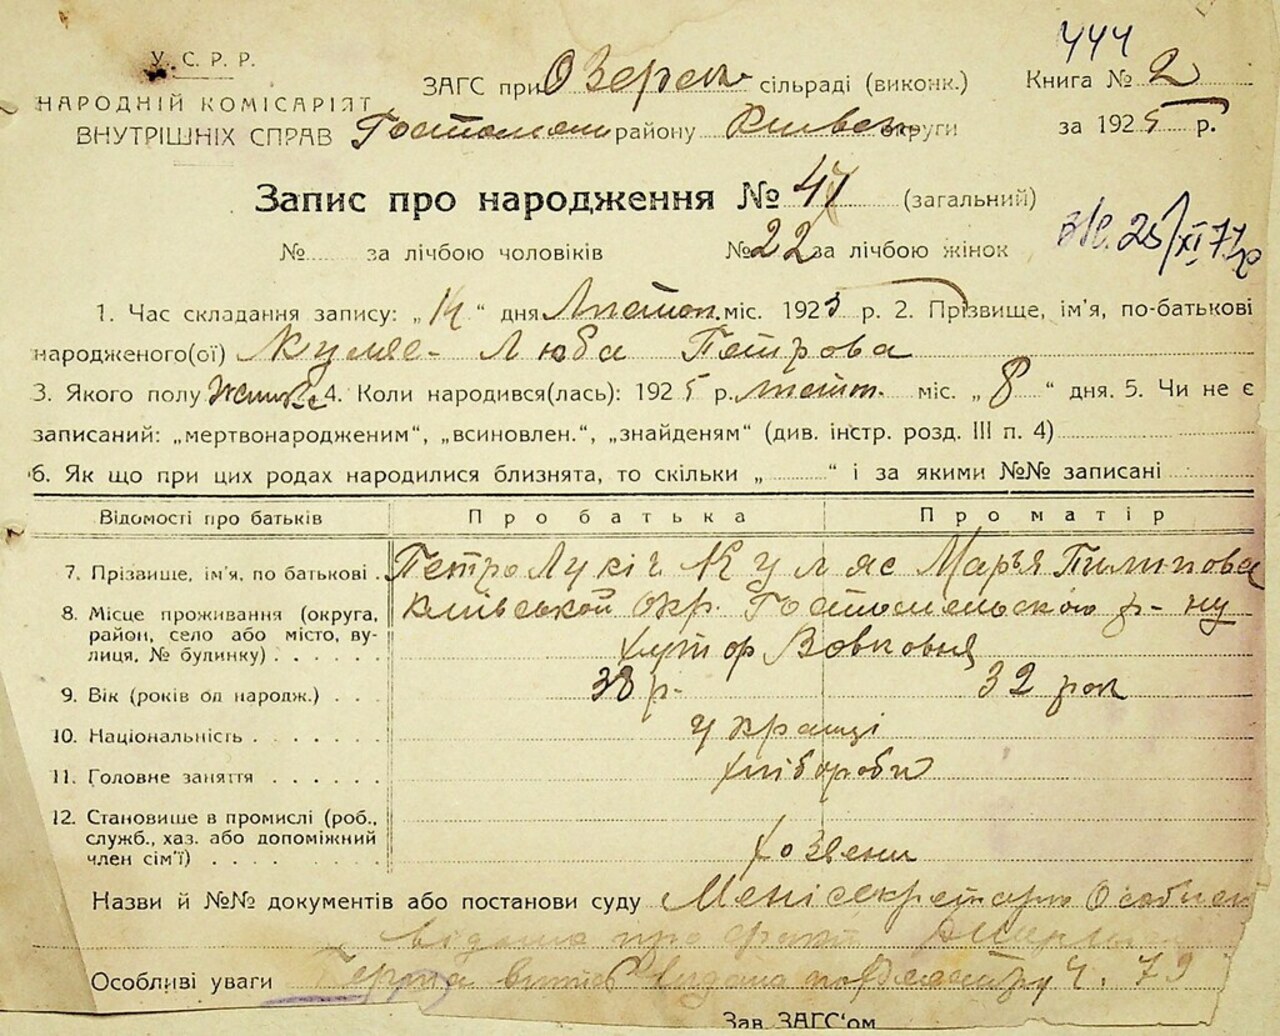 444
У.С.Р.Р.
НАРОДНІЙ КОМІСАРІЯТ
ВНУТРІШНІХ СПРАВ
ЗАГС при Озерск. сільраді (виконк.) Книга № 2
Гостомельск району Київськ округи за 1925 р.
Запис про народження № 47 (загальний)
№ за лічбою чоловіків № 22 за лічбою жінок
25/XI 71р
1. Час складання запису: „14“ дня Листоп. міс. 1925 р. 2. Прізвище, ім'я, по-батькові
народженого(ої) Куляс- Люба Петрова
3. Якого полу Жіноче 4. Коли народився(лась): 1925 р. листоп. міс. „8“ дня. 5. Чи не є
записаний: „мертвонародженим“, „всиновлен.“, „знайденям“ (див. інстр. розд. III п. 4)
6. Як що при цих родах народилися близнята, то скільки „ “ і за якими №№ записані
Відомості про батьків Про батька Про матір
7. Прізвище, ім'я, по батькові. Петро Лукіч Куляс Марья Пилипова
8. Місце проживання (округа, Київськой окр. Гостомельского р-ну
район, село або місто, ву-
лиця, № будинку) хутор Вовковня
9. Вік (років од народж.) 38 р. 32 рок
10. Національність українці
11. Головне заняття хлібороби
12. Становище в промислі (роб.,
служб., хаз. або допоміжний
член сім'ї) хозяени
Назви й №№ документів або постанови суду Мені секретарю Особисто
відомо про факт
Особливі уваги видано по Реєстру ч. 79
Зав. ЗАГС'ом